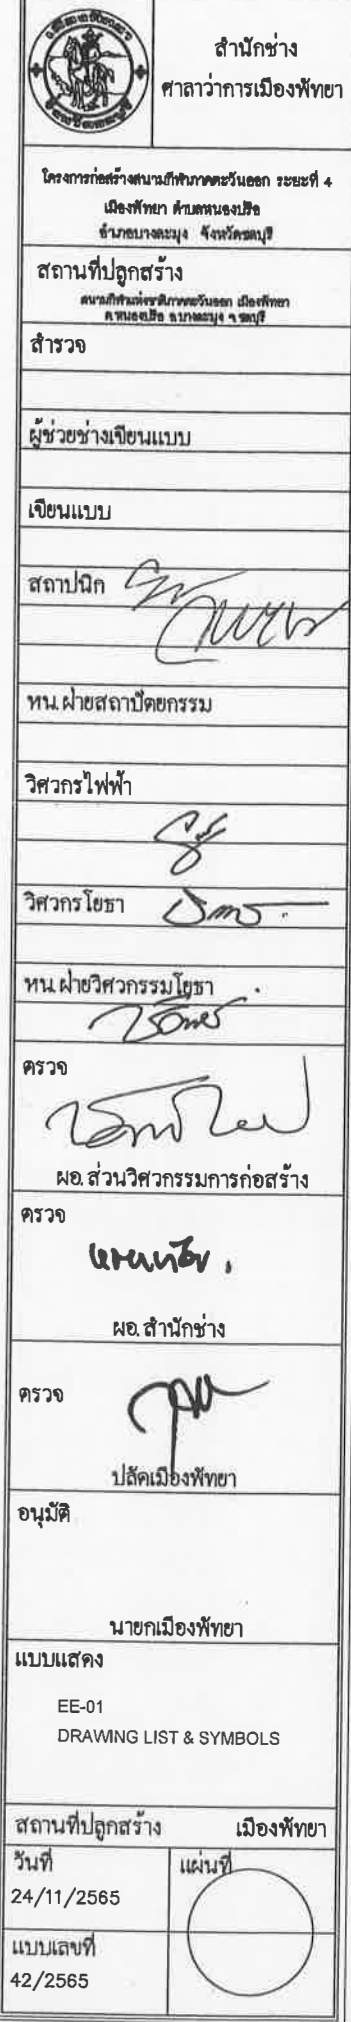 สำนักช่าง
ศาลาว่าการเมืองพัทยา
โครงการก่อสร้างสนามกีฬาภาคตะวันออก ระยะที่ 4
เมืองพัทยา ตำบลหนองปรือ
อำเภอบางละมุง จังหวัดชลบุรี
สถานที่ปลูกสร้าง
สนามกีฬาแห่งชาติภาคตะวันออก เมืองพัทยา
ต.หนองปรือ อ.บางละมุง จ.ชลบุรี
สำรวจ
ผู้ช่วยช่างเขียนแบบ
เขียนแบบ
สถาปนิก
หน.ฝ่ายสถาปัตยกรรม
วิศวกรไฟฟ้า
วิศวกรโยธา
หน.ฝ่ายวิศวกรรมโยธา
ตรวจ
ผอ.ส่วนวิศวกรรมการก่อสร้าง
ตรวจ
ผอ.สำนักช่าง
ตรวจ
ปลัดเมืองพัทยา
อนุมัติ
นายกเมืองพัทยา
แบบแสดง
EE-01
DRAWING LIST & SYMBOLS
สถานที่ปลูกสร้าง เมืองพัทยา
วันที่ แผ่นที่
24/11/2565
แบบเลขที่
42/2565